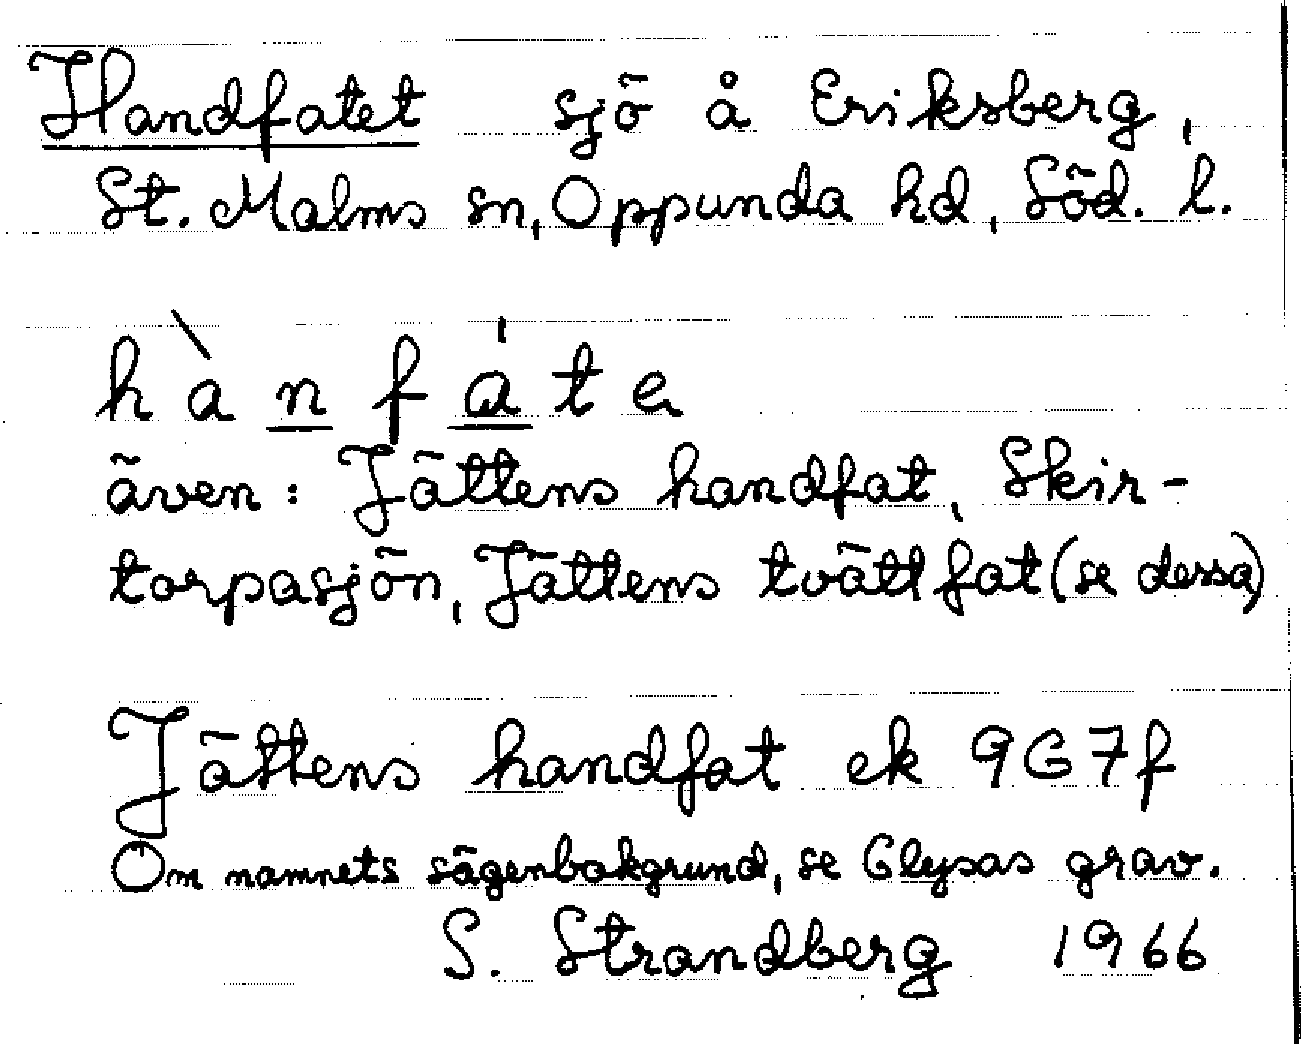 Handfatet sjö å Eriksberg,
St. Malms sn, Oppunda hd, Söd. l.
hànfáte
även: Jättens handfat, Skir-
torpasjön, Jättens tvättfat (se dessa)
Jättens handfat ek 9G7f
Om namnets sägenbakgrund, se Glysas grav.
S. Strandberg 1966